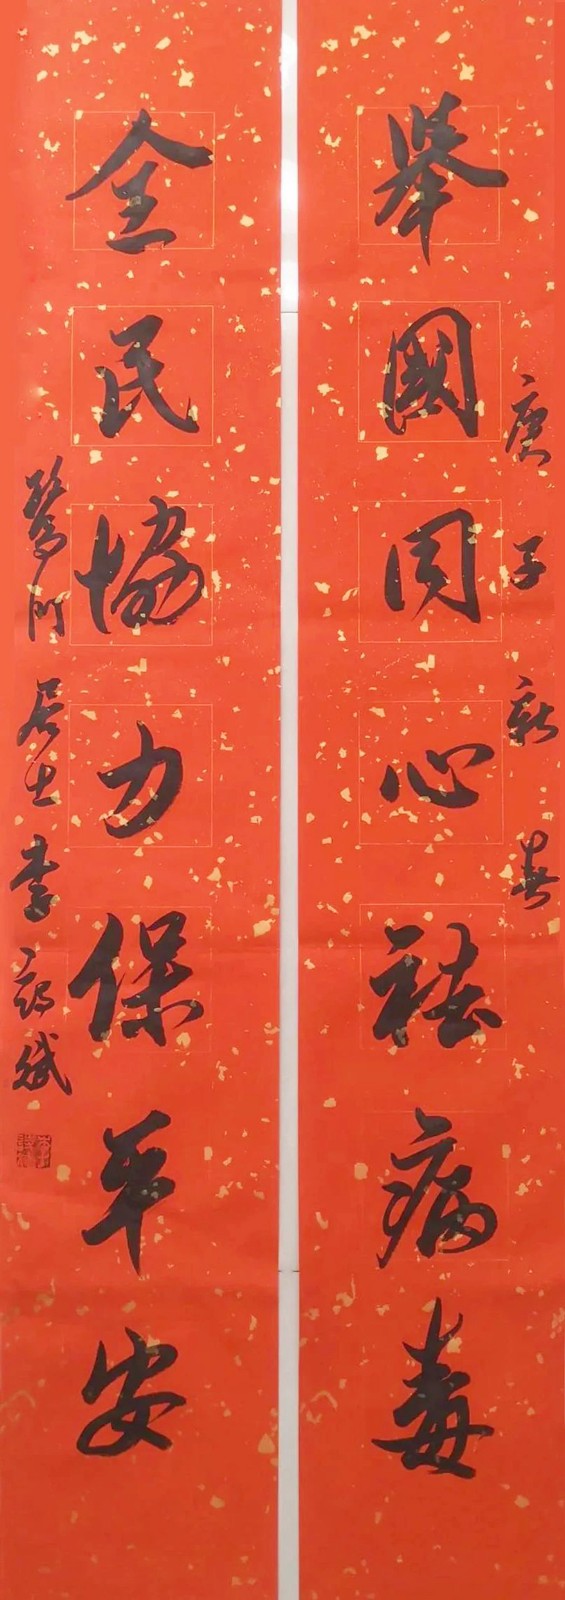 庚子新春
舉國同心祛病毒
全民協力保平安
鷺門居士李